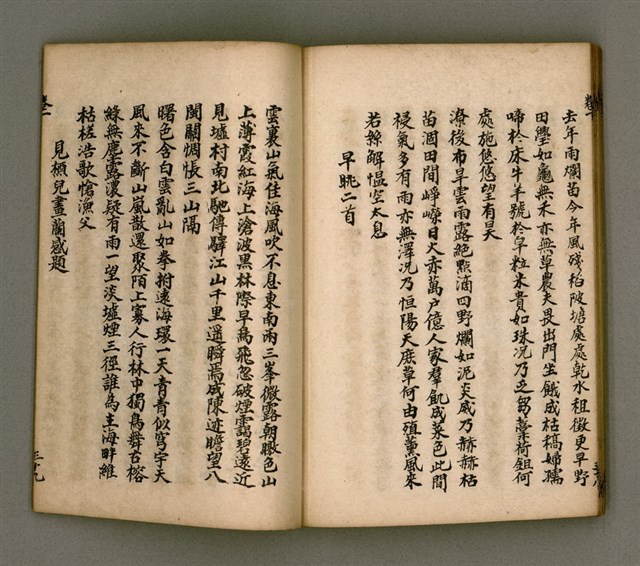 去年雨爛苗今年風殘稻陂塘處處乾水租徵更早野
田璺如龜無禾亦無草農夫畏出門坐餓成枯槁婦孺
啼於床牛羊號於皁粒米貴如珠況乃乏芻藁荷鉏何
處施悠悠望有昊
潦後布旱雲雨露絕點滴四野爛如泥炎威乃赫赫枯
苗涸田間崢嶸日火赤萬戶億人家羣飢成菜色此間
祲氣多有雨亦無澤況乃恒陽天庶草何由碩薰風來
若絲解慍空太息
早眺二首
雲裏山氣佳海風吹不息東南兩三峯微露朝暾色山
上薄霞紅海上滄波黑林際早鳥飛忽破煙靄碧遠近
見墟村南北馳傳驛江山千里遙瞬焉成陳迹瞻望八
閩關惆悵三山隔
曙色含白雲亂山如拳拊遠海環一天青青似穹宇天
風來不斷山嵐散還聚陌上寡人行林中獨鳥舞古榕
綠無塵露濃疑有雨一望淡墟煙三徑誰為主海畔維
枯槎浩歌愴漁父
見橚兒畫蘭感題
三十九